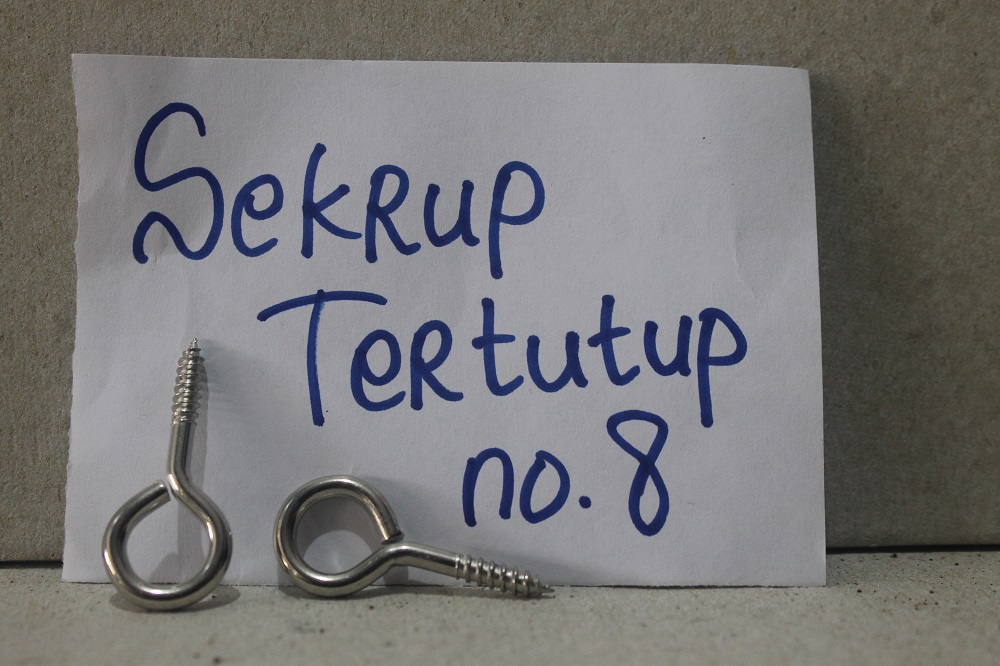 Sekrup
Tertutup
no. 8